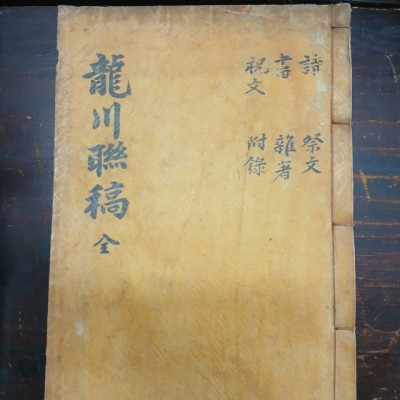 詩 祭文
書 雜著
祝文 附錄
龍川聯稿 全